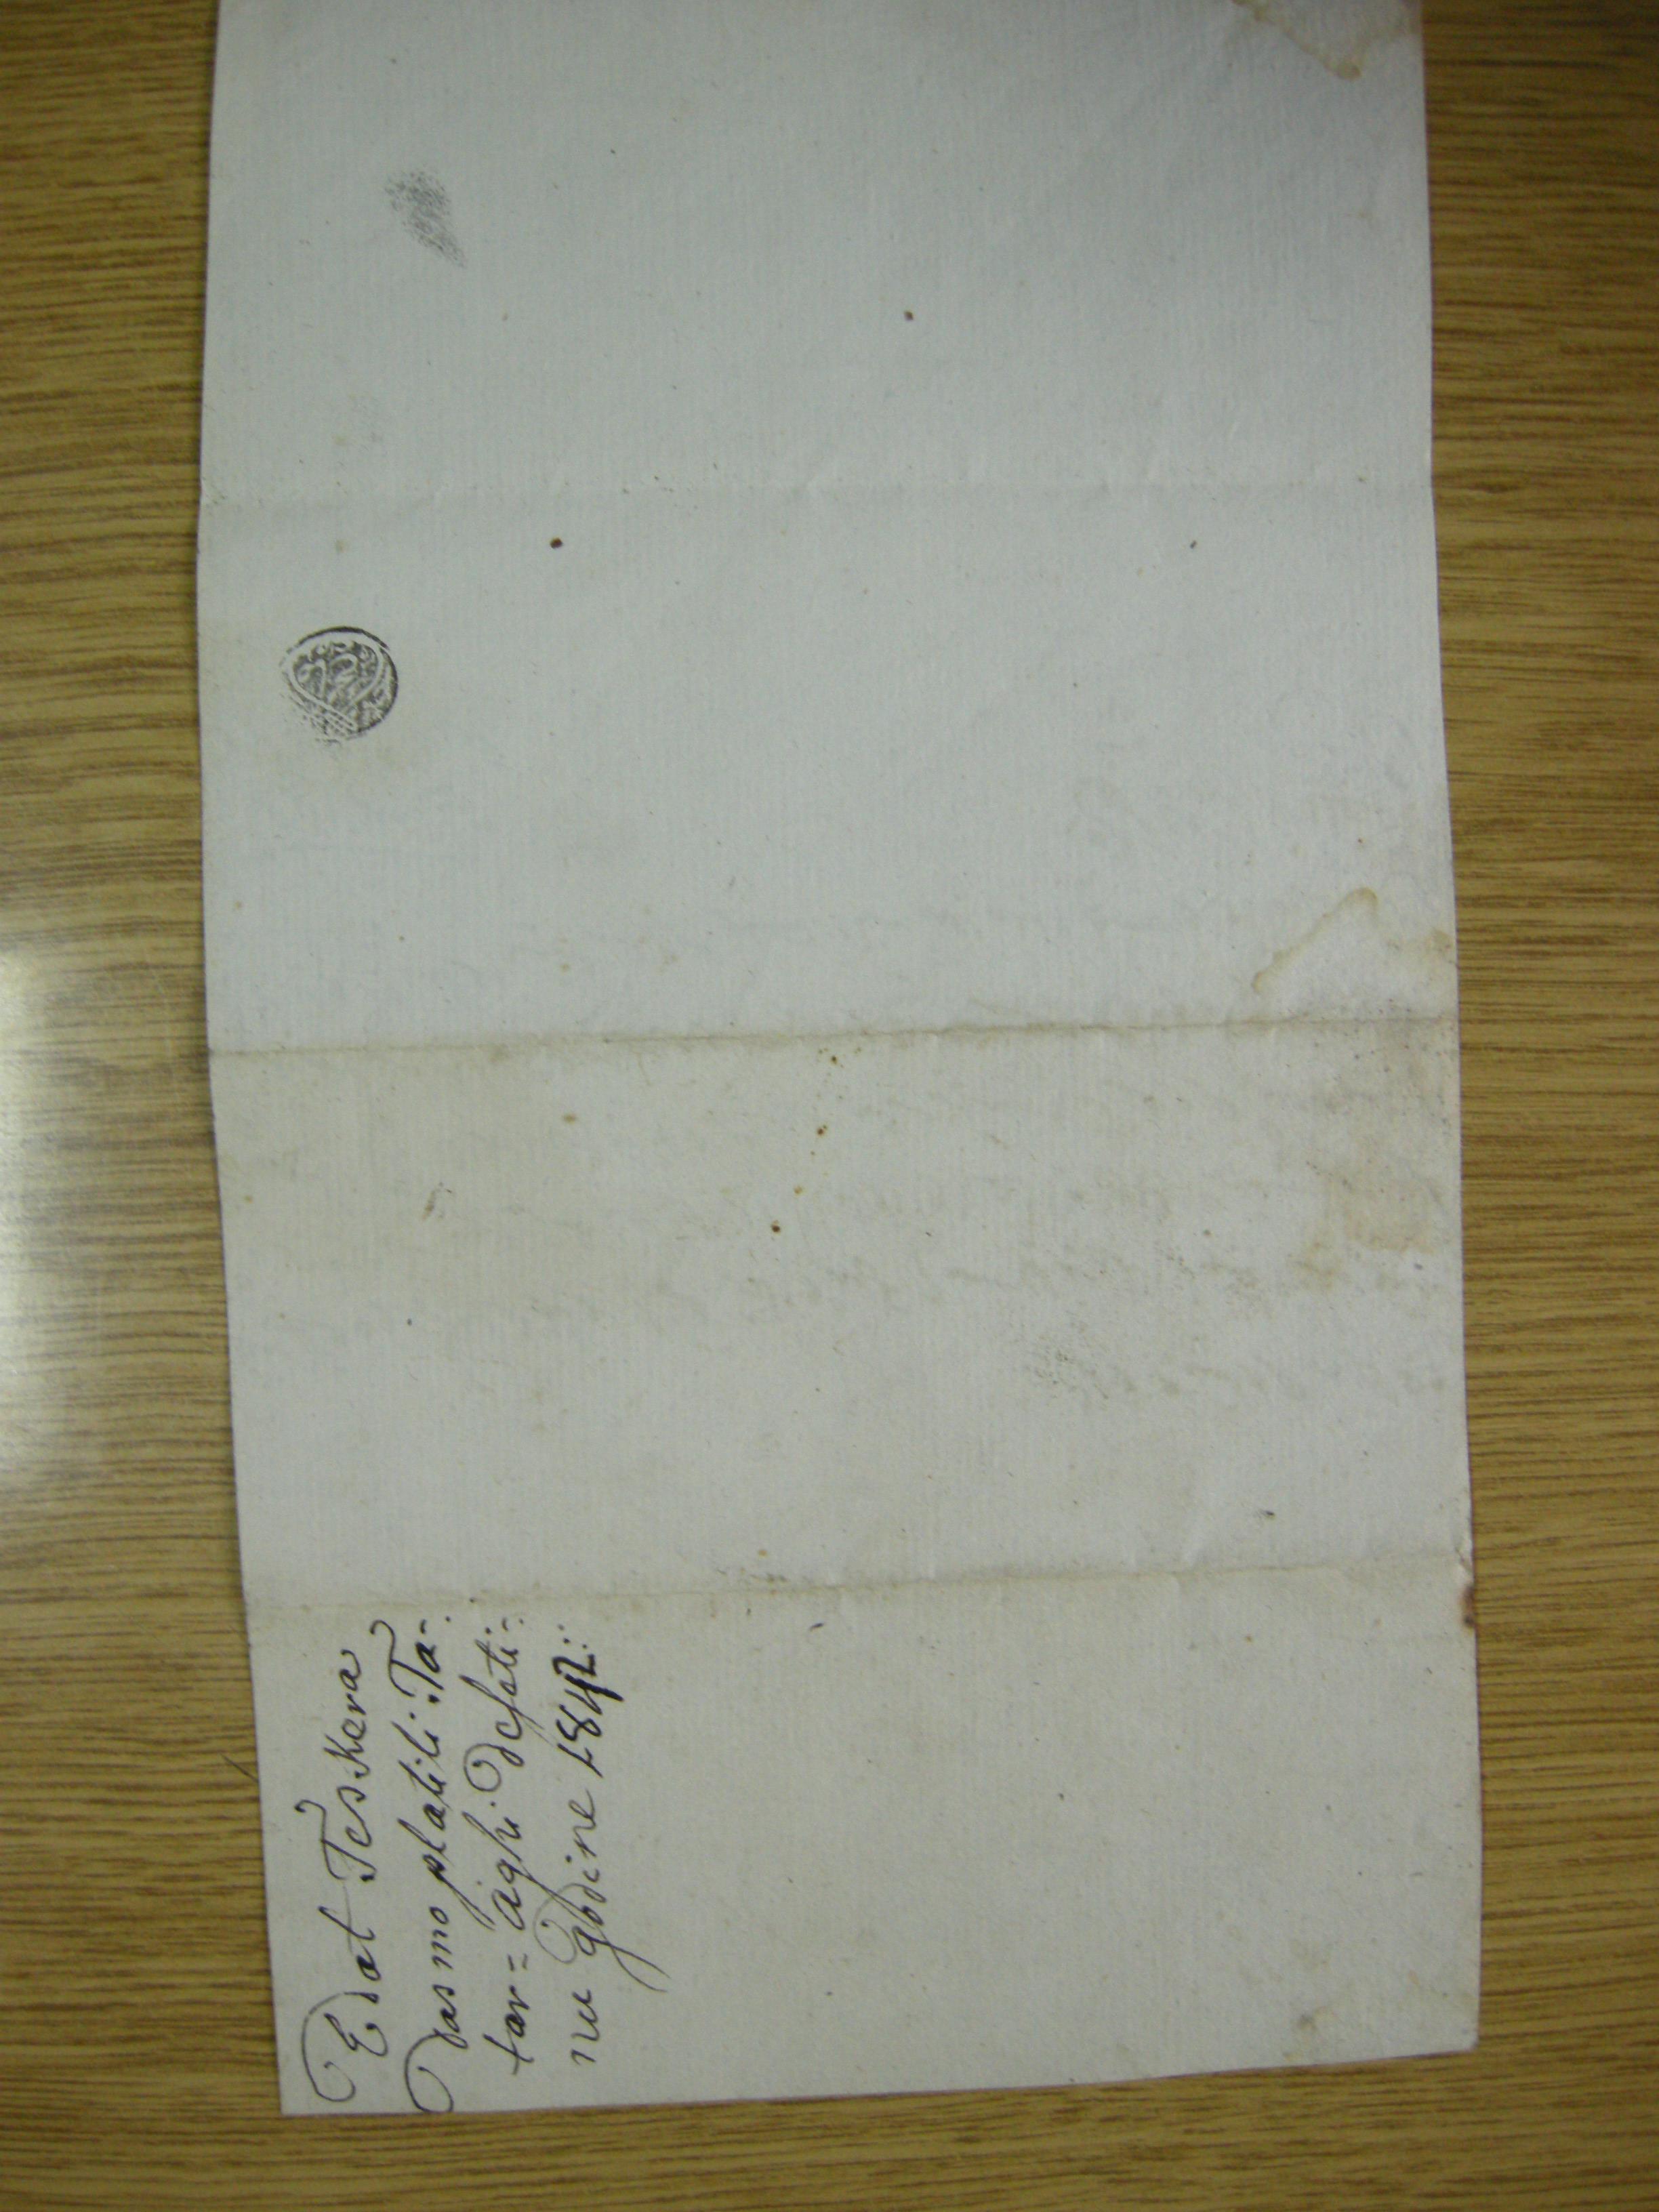 Edat Teskera
Dasmo platili Ta-
tar= Aghi Deseti-
nu godine 1842: